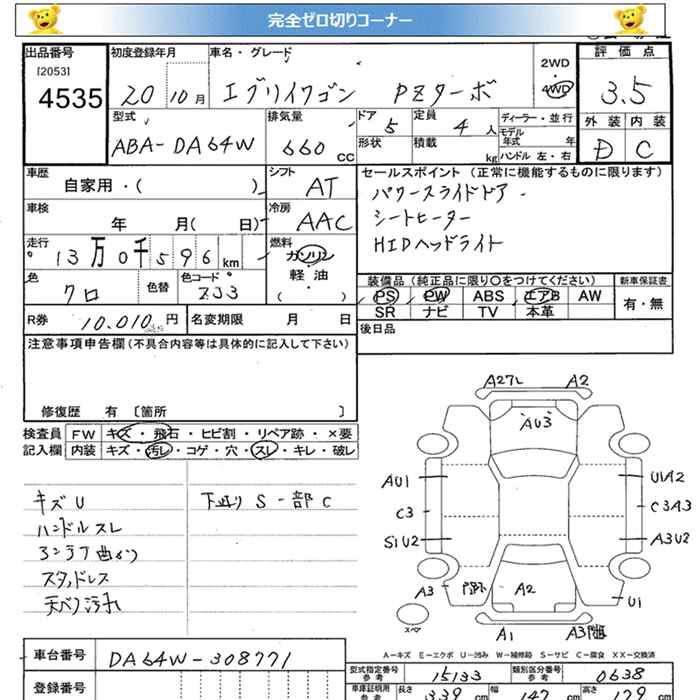 完全ゼロ切りコーナー
出品番号
[2053]
4535
初度登録年月
20 10月
車名・グレード
エブリイワゴン PZターボ
2WD
4WD
評価点
3.5
型式
ABA-DA64W
排気量
660 CC
ドア 5
形状
定員 4 人
積載 kg
ディーラー・並行
モデル年式 年
ハンドル 左・右
外装 内装
D C
車歴
自家用・( )
シフト
AT
セールスポイント(正常に機能するものに限ります)
パワースライドドア
シートヒーター
HIDヘッドライト
車検
年 月( 日)
冷房
AAC
走行
13万0千596km
燃料
ガソリン
軽・油
( )
色
クロ
色替
色コード
ZJ3
装備品(純正品に限り○をつけてください)
PS PW ABS エアB AW
SR ナビ TV 本革
新車保証書
有・無
R券 10,010円
名変期限 月 日
後日品
注意事項申告欄(不具合内容等は具体的に記入して下さい)
修復歴 有 〔箇所 〕
検査員 FW キズ・飛石・ヒビ割・リペア跡・×要
記入欄 内装 キズ・汚レ・コゲ・穴・スレ・キレ・破レ
キズU
ハンドルスレ
スタッドレス
天ベリ汚れ
下廻り S 一部 C
A27L A2
AU3
AU1
C3
S1U2
U1A2
C3A3
A3U2
A3
A2
U1
A1
A3
スペア
A-キズ E-エクボ U-凹み W-補修跡 S-サビ C-腐食 XX-交換済
車台番号 DA64W-308771
登録番号
型式指定番号 参考 15133
類別区分番号 参考 0638
車庫証明用 参考 長さ 339 cm 幅 147 cm 高さ 179 cm